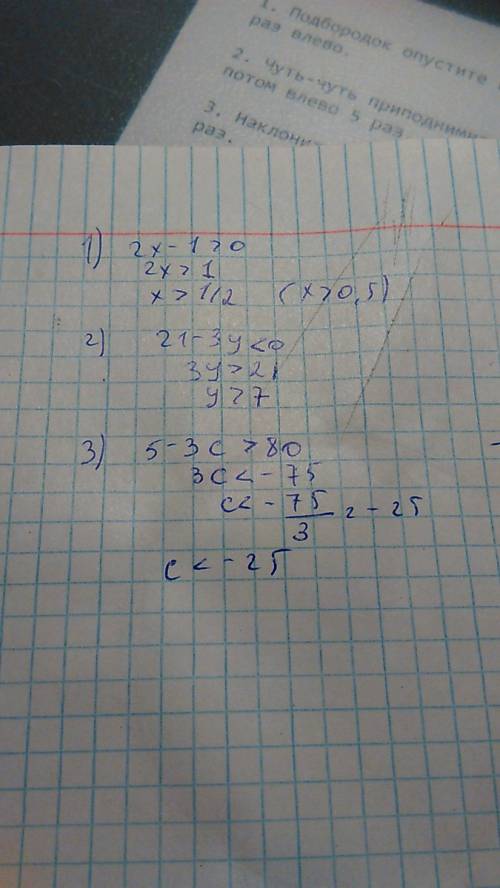 1. Подбородок опустите
раз влево.
2. Чуть-чуть
потом влево 5 раз.
3.
раз.
1) 2x - 1 > 0
2x > 1
x > 1/2 (x > 0,5)
2) 21 - 3y < 0
3y > 21
y > 7
3) 5 - 3c > 80
3c < - 75
c < - 75/3 = - 25
c < - 25